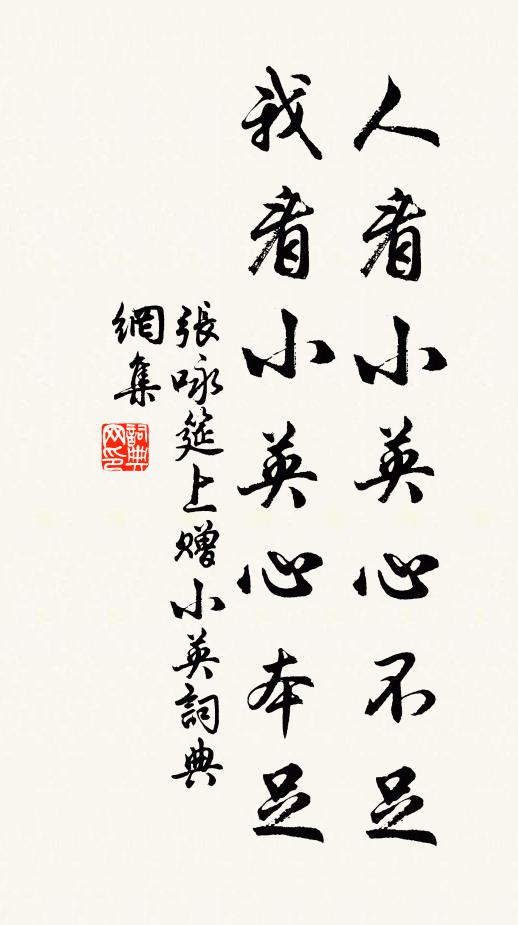 人看小英心不足
我看小英心本足
張咏筵上贈小英詞典
網集
詞典
网印